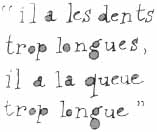 "il a les dents
trop longues,
il a la queue
trop longue"